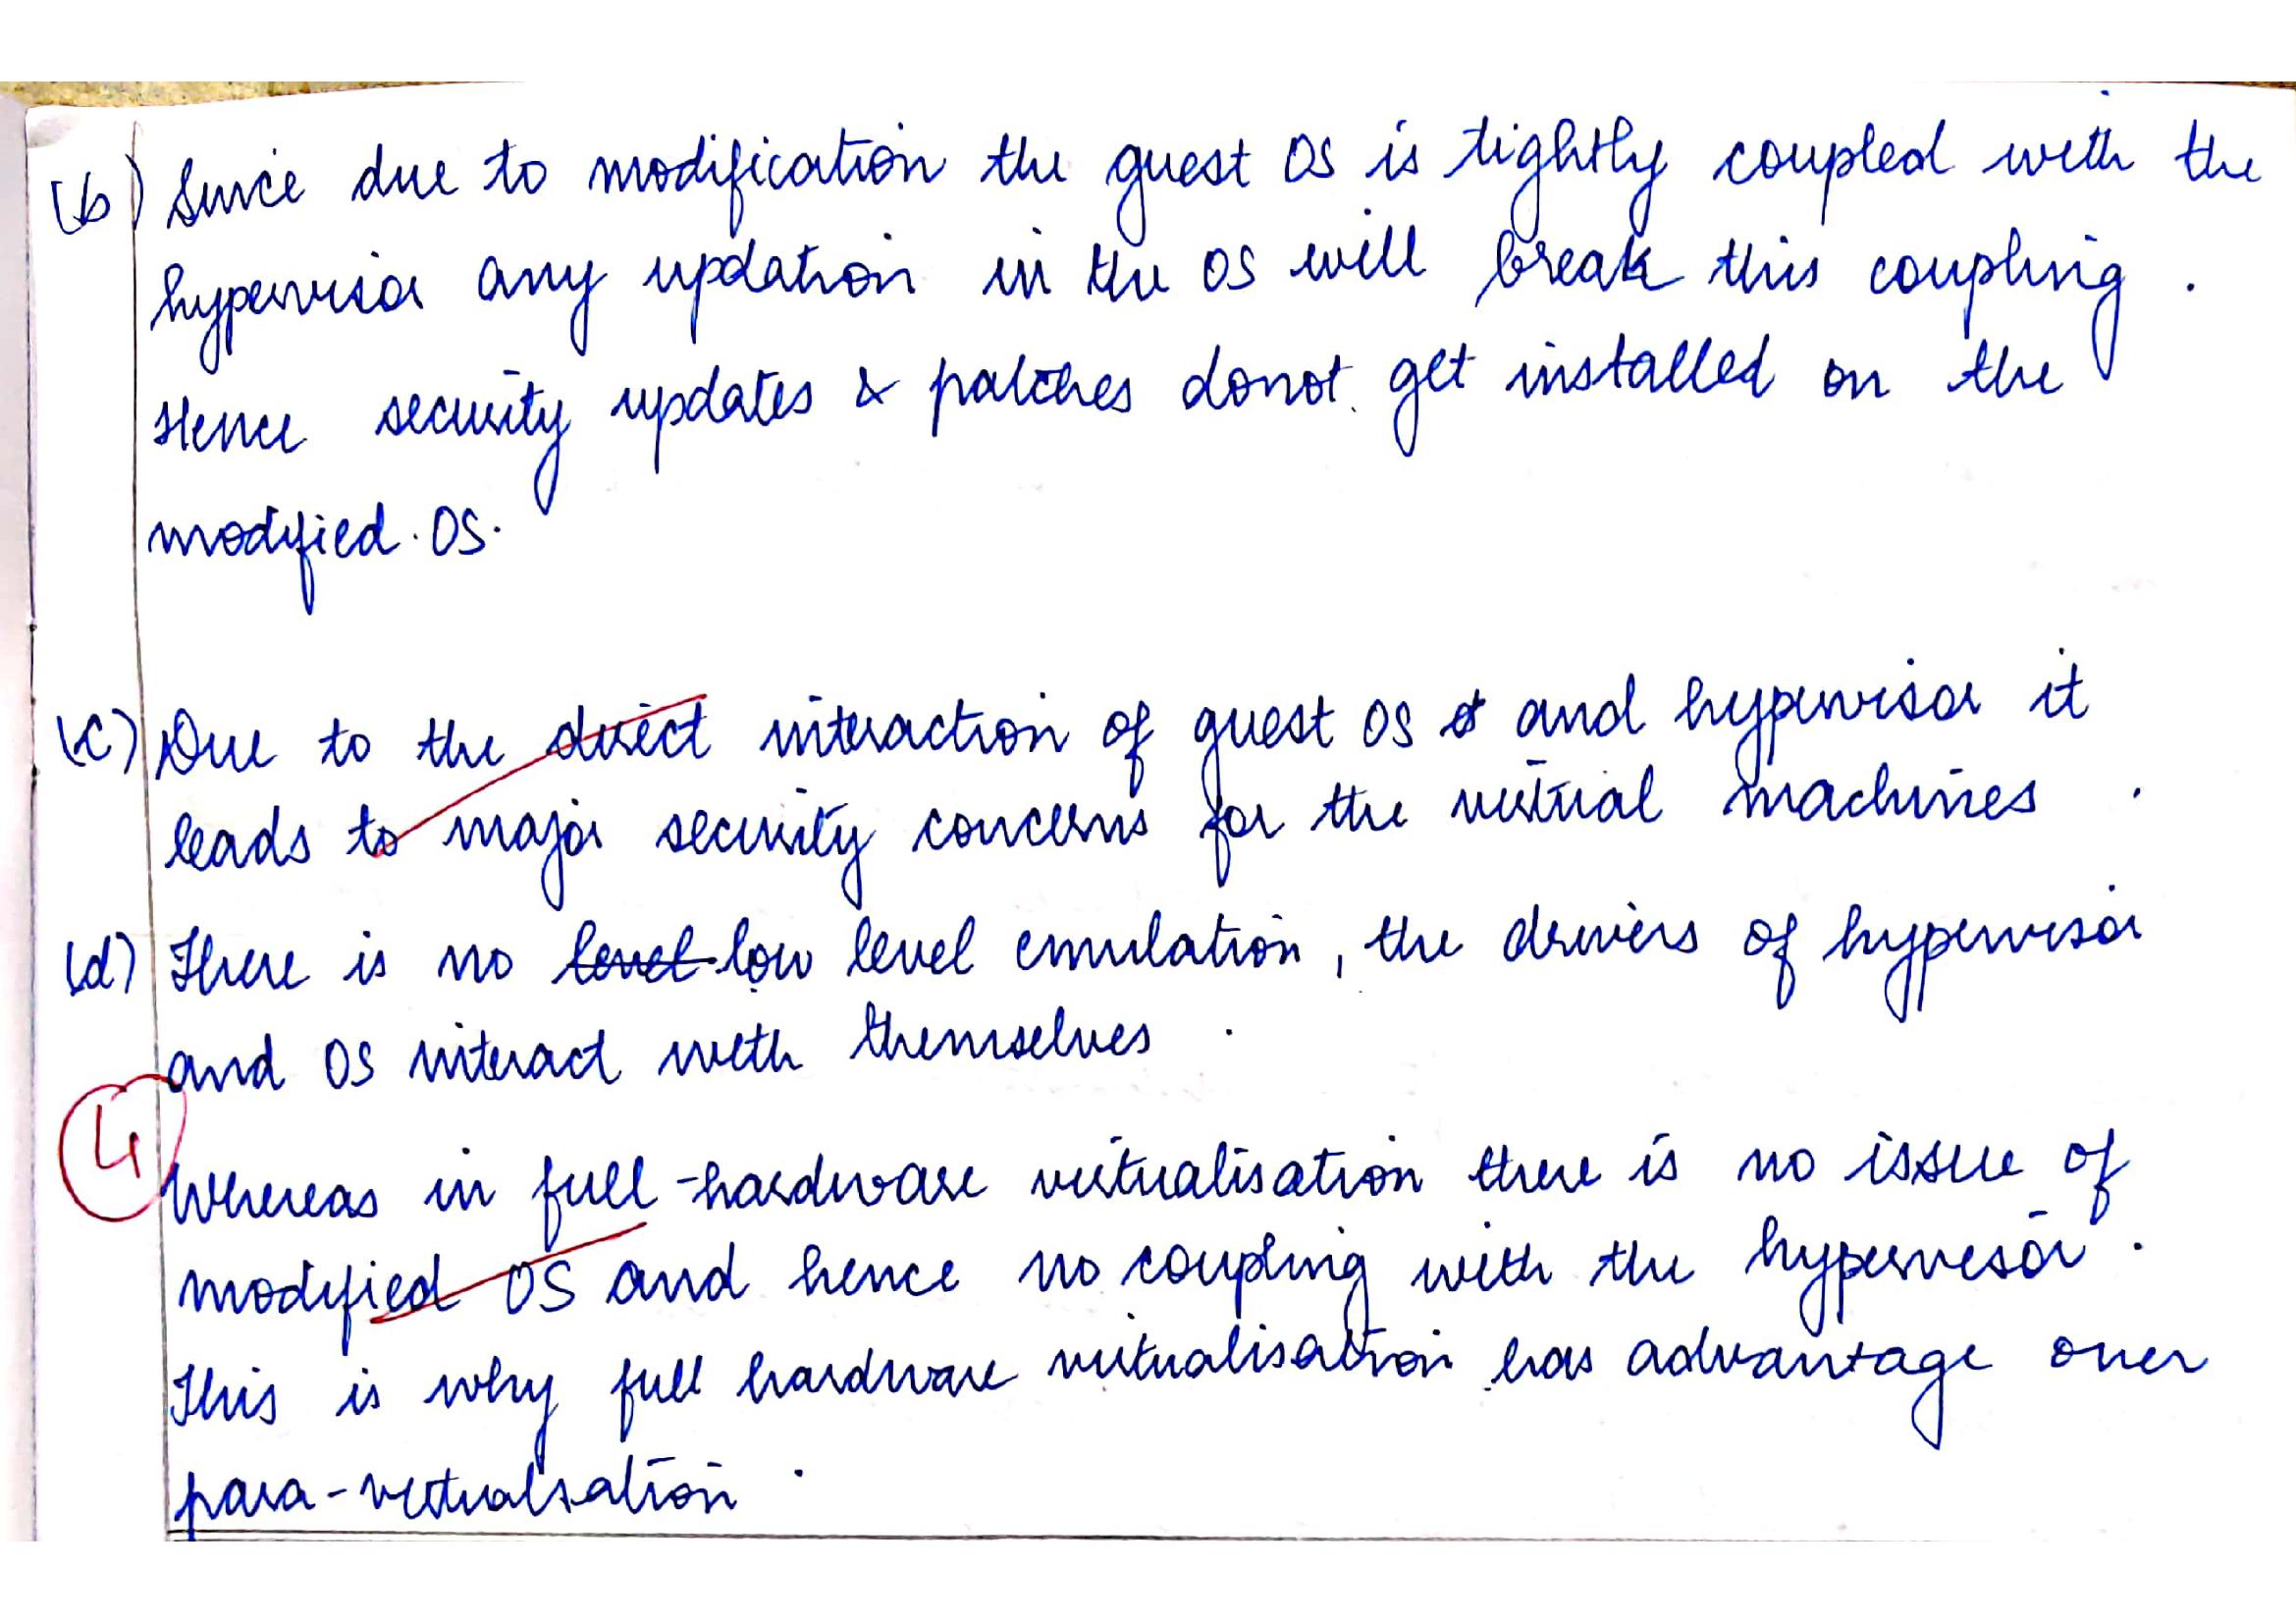 (b) Since due to modification the guest OS is tightly coupled with the
hypervisor any updation in the OS will break this coupling .
Hence security updates & patches donot get installed on the
modified OS.
(c) Due to the direct interaction of guest OS and hypervisor it
leads to major security concerns for the virtual machines .
(d) There is no level low level emulation, the drivers of hypervisor
and OS interact with themselves .
4
Whereas in full-hardware virtualisation there is no issue of
modified OS and hence no coupling with the hypervisor .
This is why full hardware virtualisation has advantage over
para-virtualsation .